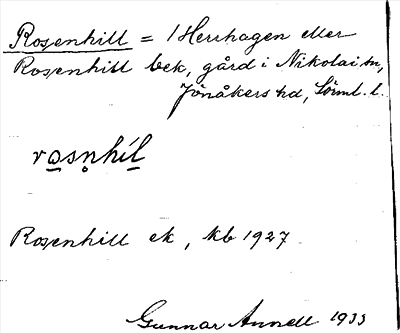 Rosenhill = 1 Herrhagen eller
Rosenhill bek, gård i Nikolai sn,
Jönåkers hd, Sörml. l.
rosnhíl
Rosenhill ek, kb 1927
Gunnar Annell 1933